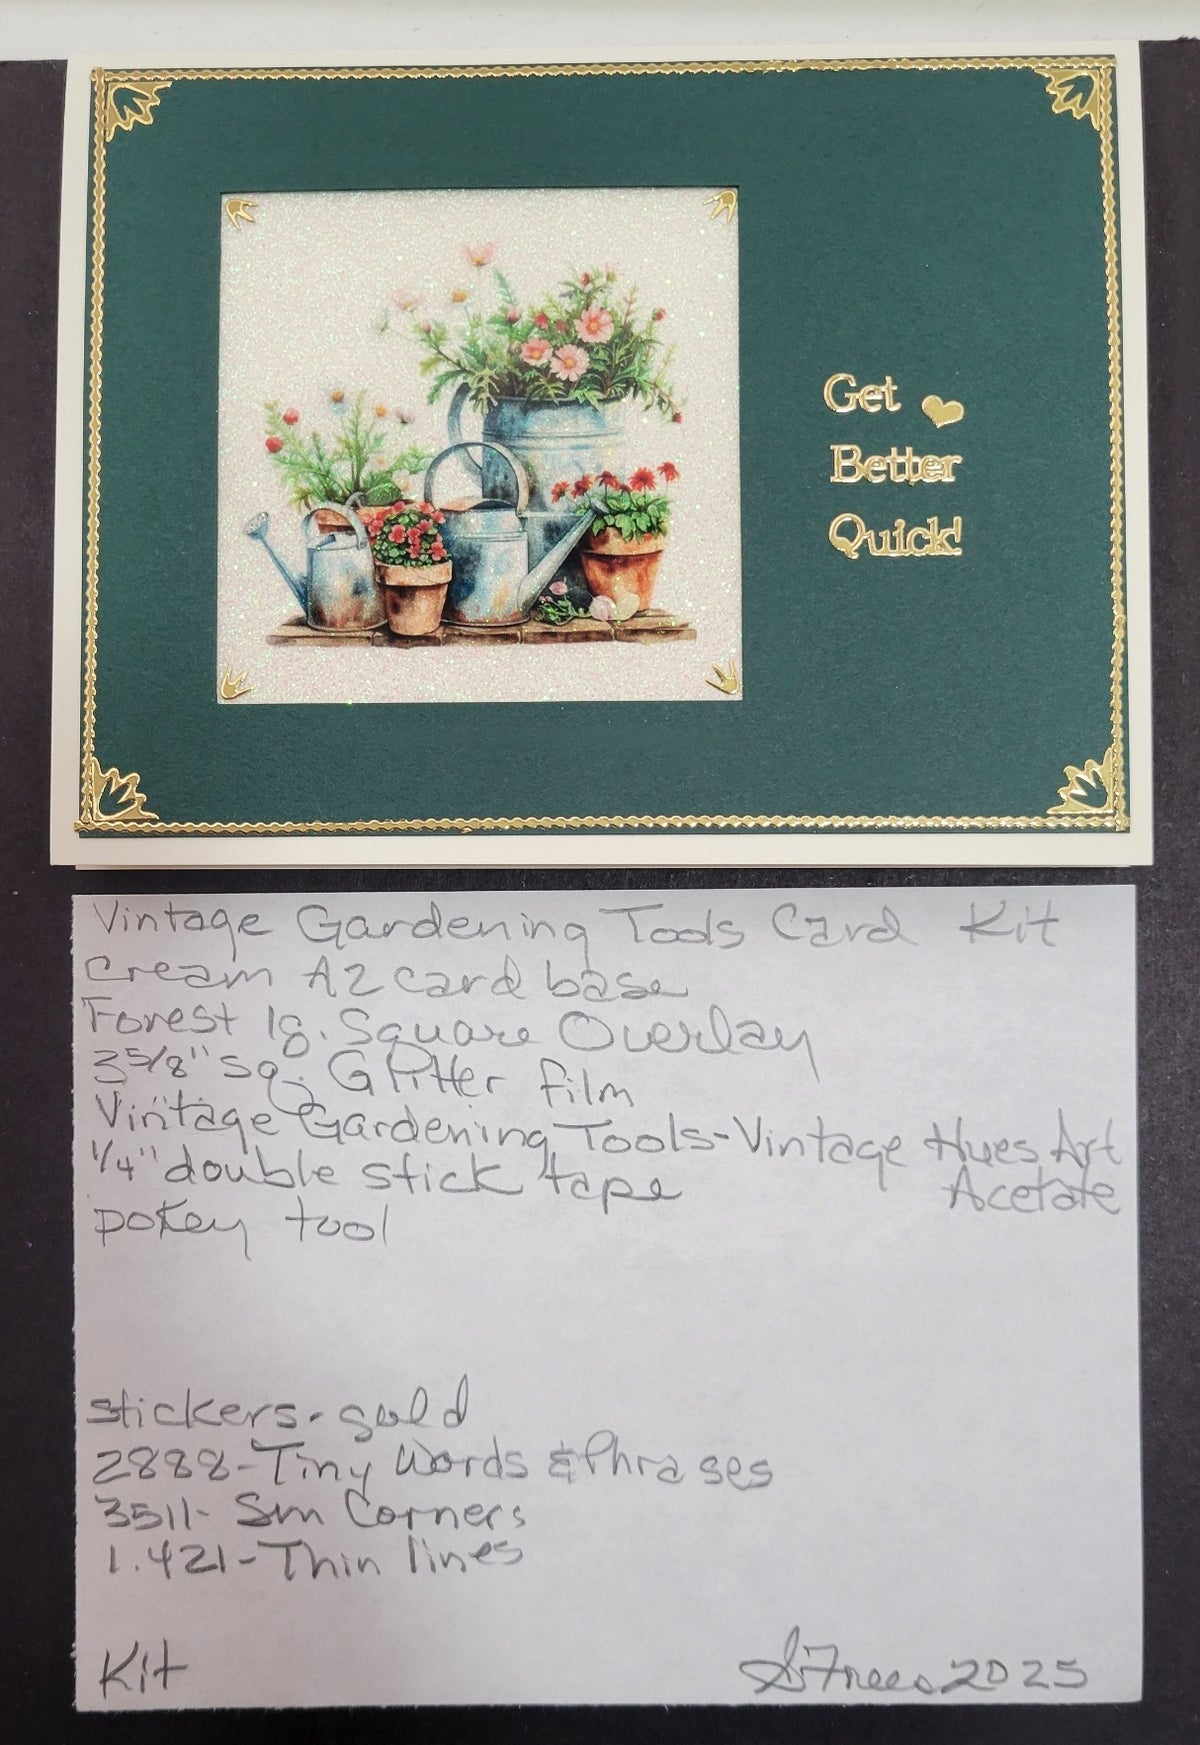 Get
Better
Quick!
Vintage Gardening Tools Card Kit
Cream A2 card base
Forest lg. Square Overlay
3 5/8" sq. Glitter film
Vintage Gardening Tools-Vintage Hues Art
Acetate
1/4" double stick tape
pokey tool
stickers- gold
2888-Tiny Words & Phrases
3511- Sm Corners
1.421-Thin lines
Kit
2025